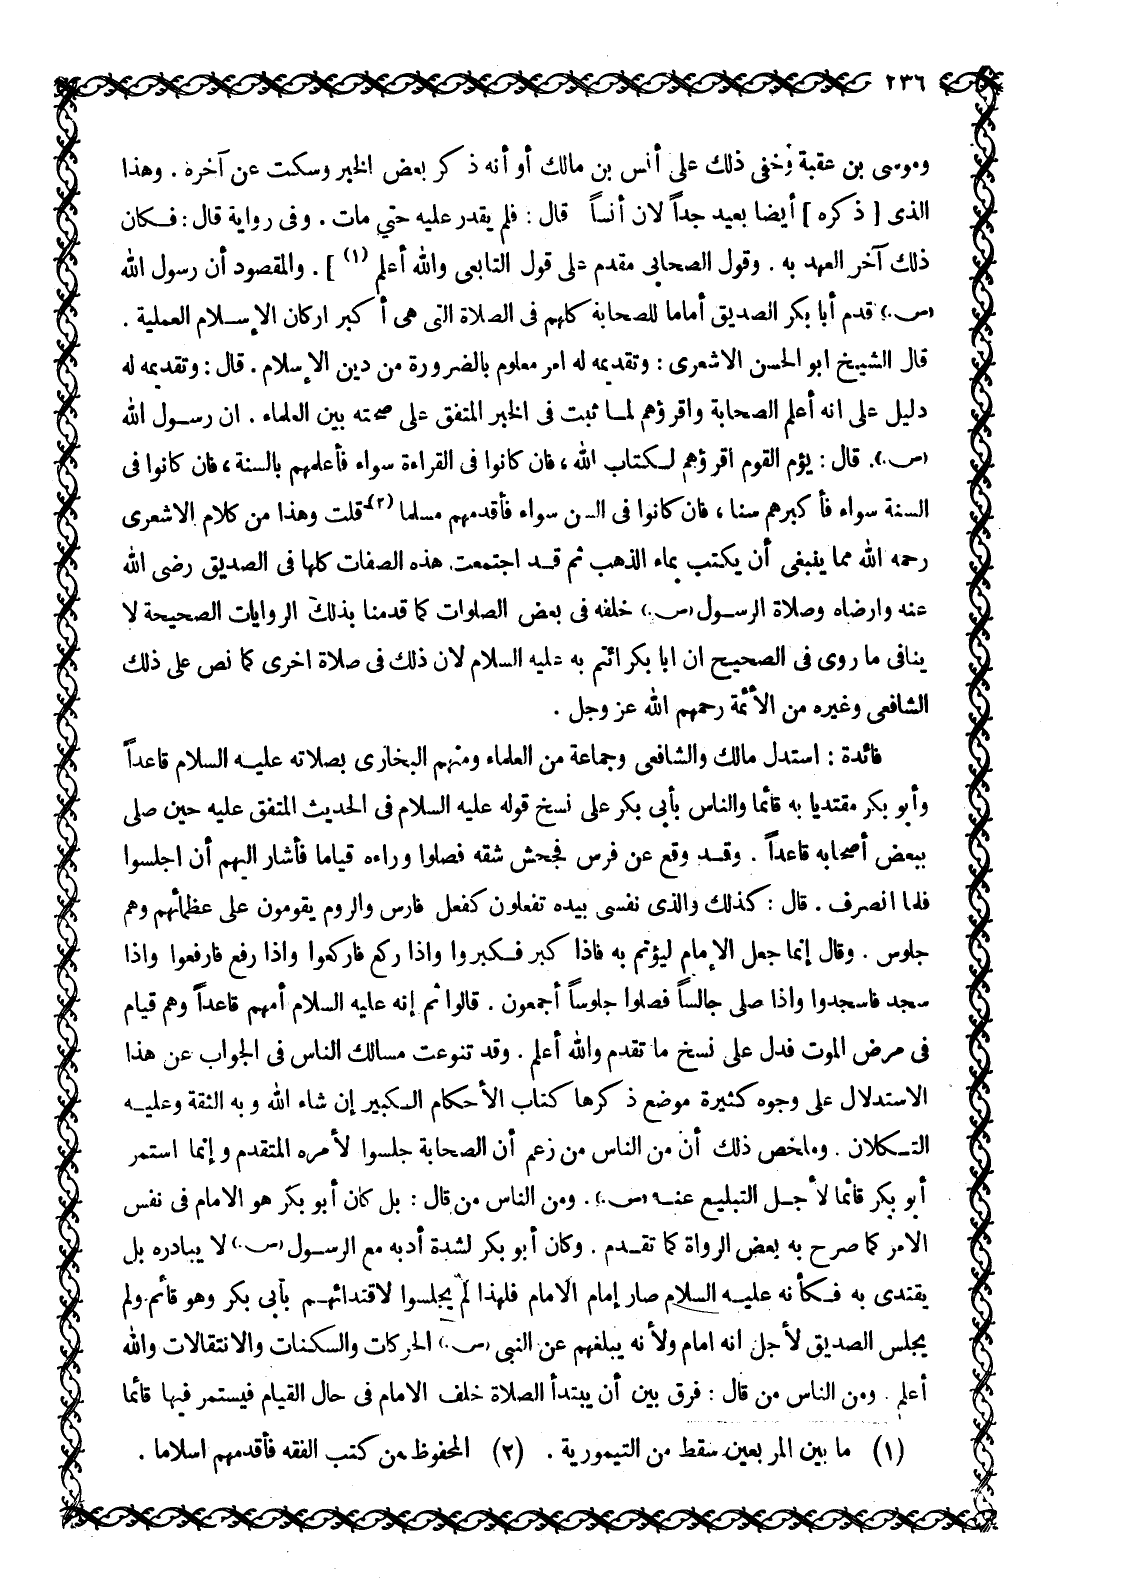 ٢٣٦
وموسى بن عقبة وُخفى ذلك على أنس بن مالك أو أنه ذكر بعض الخبر وسكت عن آخره . وهذا
الذى [ ذكره ] أيضا بعيد جداً لان أنساً قال : فلم يقدر عليه حتي مات . وفى رواية قال : فـكان
ذلك آخر العهد به . وقول الصحابى مقدم على قول التابعى والله أعلم (١) ] . والمقصود أن رسول الله
(س.) قدم أبا بكر الصديق أماما للصحابة كلهم فى الصلاة التى هى أكبر اركان الإسـلام العملية .
قال الشيخ ابو الحسن الاشعرى : وتقديمه له امر معلوم بالضرورة من دين الإسلام . قال : وتقديمه له
دليل على انه أعلم الصحابة واقرؤهم لمـا ثبت فى الخبر المتفق على صحته بين العلماء . ان رسـول الله
(س.). قال : يؤم القوم اقرؤهم لـكتاب الله ، فان كانوا فى القراءة سواء فأعلمهم بالسنة ، فان كانوا فى
السنة سواء فأكبرهم سنا ، فان كانوا فى السن سواء فأقدمهم مسلما (٢) قلت وهذا من كلام الاشعرى
رحمه الله مما ينبغى أن يكتب بماء الذهب ثم قـد اجتمعت هذه الصفات كلها فى الصديق رضى الله
عنه وارضاه وصلاة الرسول (س.) خلفه فى بعض الصلوات كما قدمنا بذلك الروايات الصحيحة لا
ينافى ما روى فى الصحيح ان ابا بكر ائتم به عليه السلام لان ذلك فى صلاة اخرى كما نص على ذلك
الشافعى وغيره من الأئمة رحمهم الله عز وجل .
فائدة : استدل مالك والشافعى وجماعة من العلماء ومنهم البخارى بصلاته عليـه السلام قاعداً
وأبو بكر مقتديا به قائما والناس بأبى بكر على نسخ قوله عليه السلام فى الحديث المتفق عليه حين صلى
ببعض أصحابه قاعداً . وقـد وقع عن فرس فجحش شقه فصلوا وراءه قياما فأشار اليهم أن اجلسوا
فلما انصرف . قال : كذلك والذى نفسى بيده تفعلون كفعل فارس والروم يقومون على عظمائهم وهم
جلوس . وقال إنما جعل الإمام ليؤتم به فاذا كبر فـكبروا واذا ركع فاركعوا واذا رفع فارفعوا واذا
سجد فاسجدوا واذا صلى جالساً فصلوا جلوساً أجمعون . قالوا ثم إنه عليه السلام أمهم قاعداً وهم قيام
فى مرض الموت فدل على نسخ ما تقدم والله أعلم . وقد تنوعت مسالك الناس فى الجواب عن هذا
الاستدلال على وجوه كثيرة موضع ذكرها كتاب الأحكام الـكبير إن شاء الله وبه الثقة وعليـه
التـكلان . وملخص ذلك أن من الناس من زعم أن الصحابة جلسوا لأمره المتقدم وإنما استمر
أبو بكر قائما لأجـل التبليغ عنـه (س.). ومن الناس من قال : بل كان أبو بكر هو الامام فى نفس
الامر كما صرح به بعض الرواة كما تقـدم . وكان أبو بكر لشدة أدبه مع الرسـول (س.) لا يبادره بل
يقتدى به فـكأنه عليـه السلام صار إمام الامام فلهذا لم يجلسوا لاقتدائهـم بأبى بكر وهو قائم ولم
يجلس الصديق لأجل انه امام ولأنه يبلغهم عن النبى (س.) الحركات والسكنات والانتقالات والله
أعلم . ومن الناس من قال : فرق بين أن يبتدأ الصلاة خلف الامام فى حال القيام فيستمر فيها قائما
(١) ما بين المربعين سقط من التيمورية . (٢) المحفوظ من كتب الفقه فأقدمهم اسلاما .